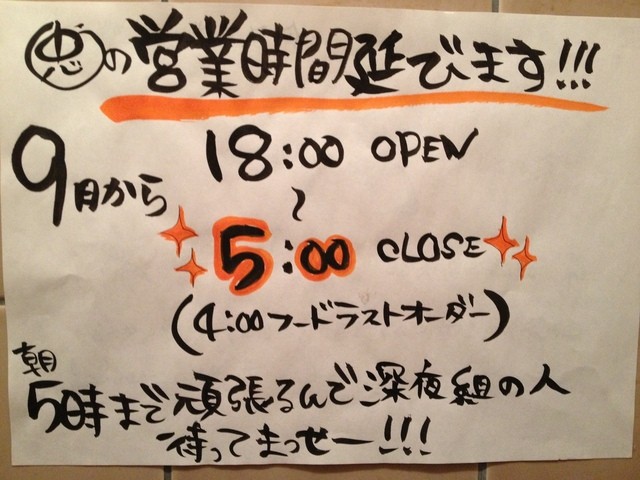 忠の営業時間延びます!!!
9月から 18:00 OPEN
～
5:00 CLOSE
(4:00フードラストオーダー)
朝
5時まで頑張るんで深夜組の人
待ってまっせー!!!